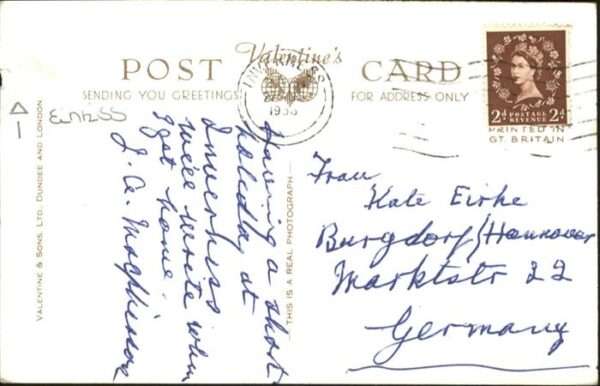 POST Valentine's CARD
SENDING YOU GREETINGS FOR ADDRESS ONLY
1956
2d POSTAGE REVENUE 2d
PRINTED IN
GT. BRITAIN
VALENTINE & SONS, LTD., DUNDEE AND LONDON
THIS IS A REAL PHOTOGRAPH
Having a short
holiday at
Inverness
will write when
I get home.
J. A. Macpherson
Frau
Kate Eirke
Burgdorf/Hannover
Marktstr 22
Germany